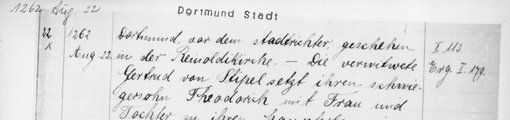 1262 Aug. 22
Dortmund Stadt
22
x
1262
Aug 22.
Dortmund, vor dem stadtrichter, geschehen
in der Reinoldikirche. — Die verwitwete
Gertrud von Stipel setzt ihren schwie-
gersohn Theodorich mit Frau und
Tochter zu ihren
I 113
Erg. I. 179.